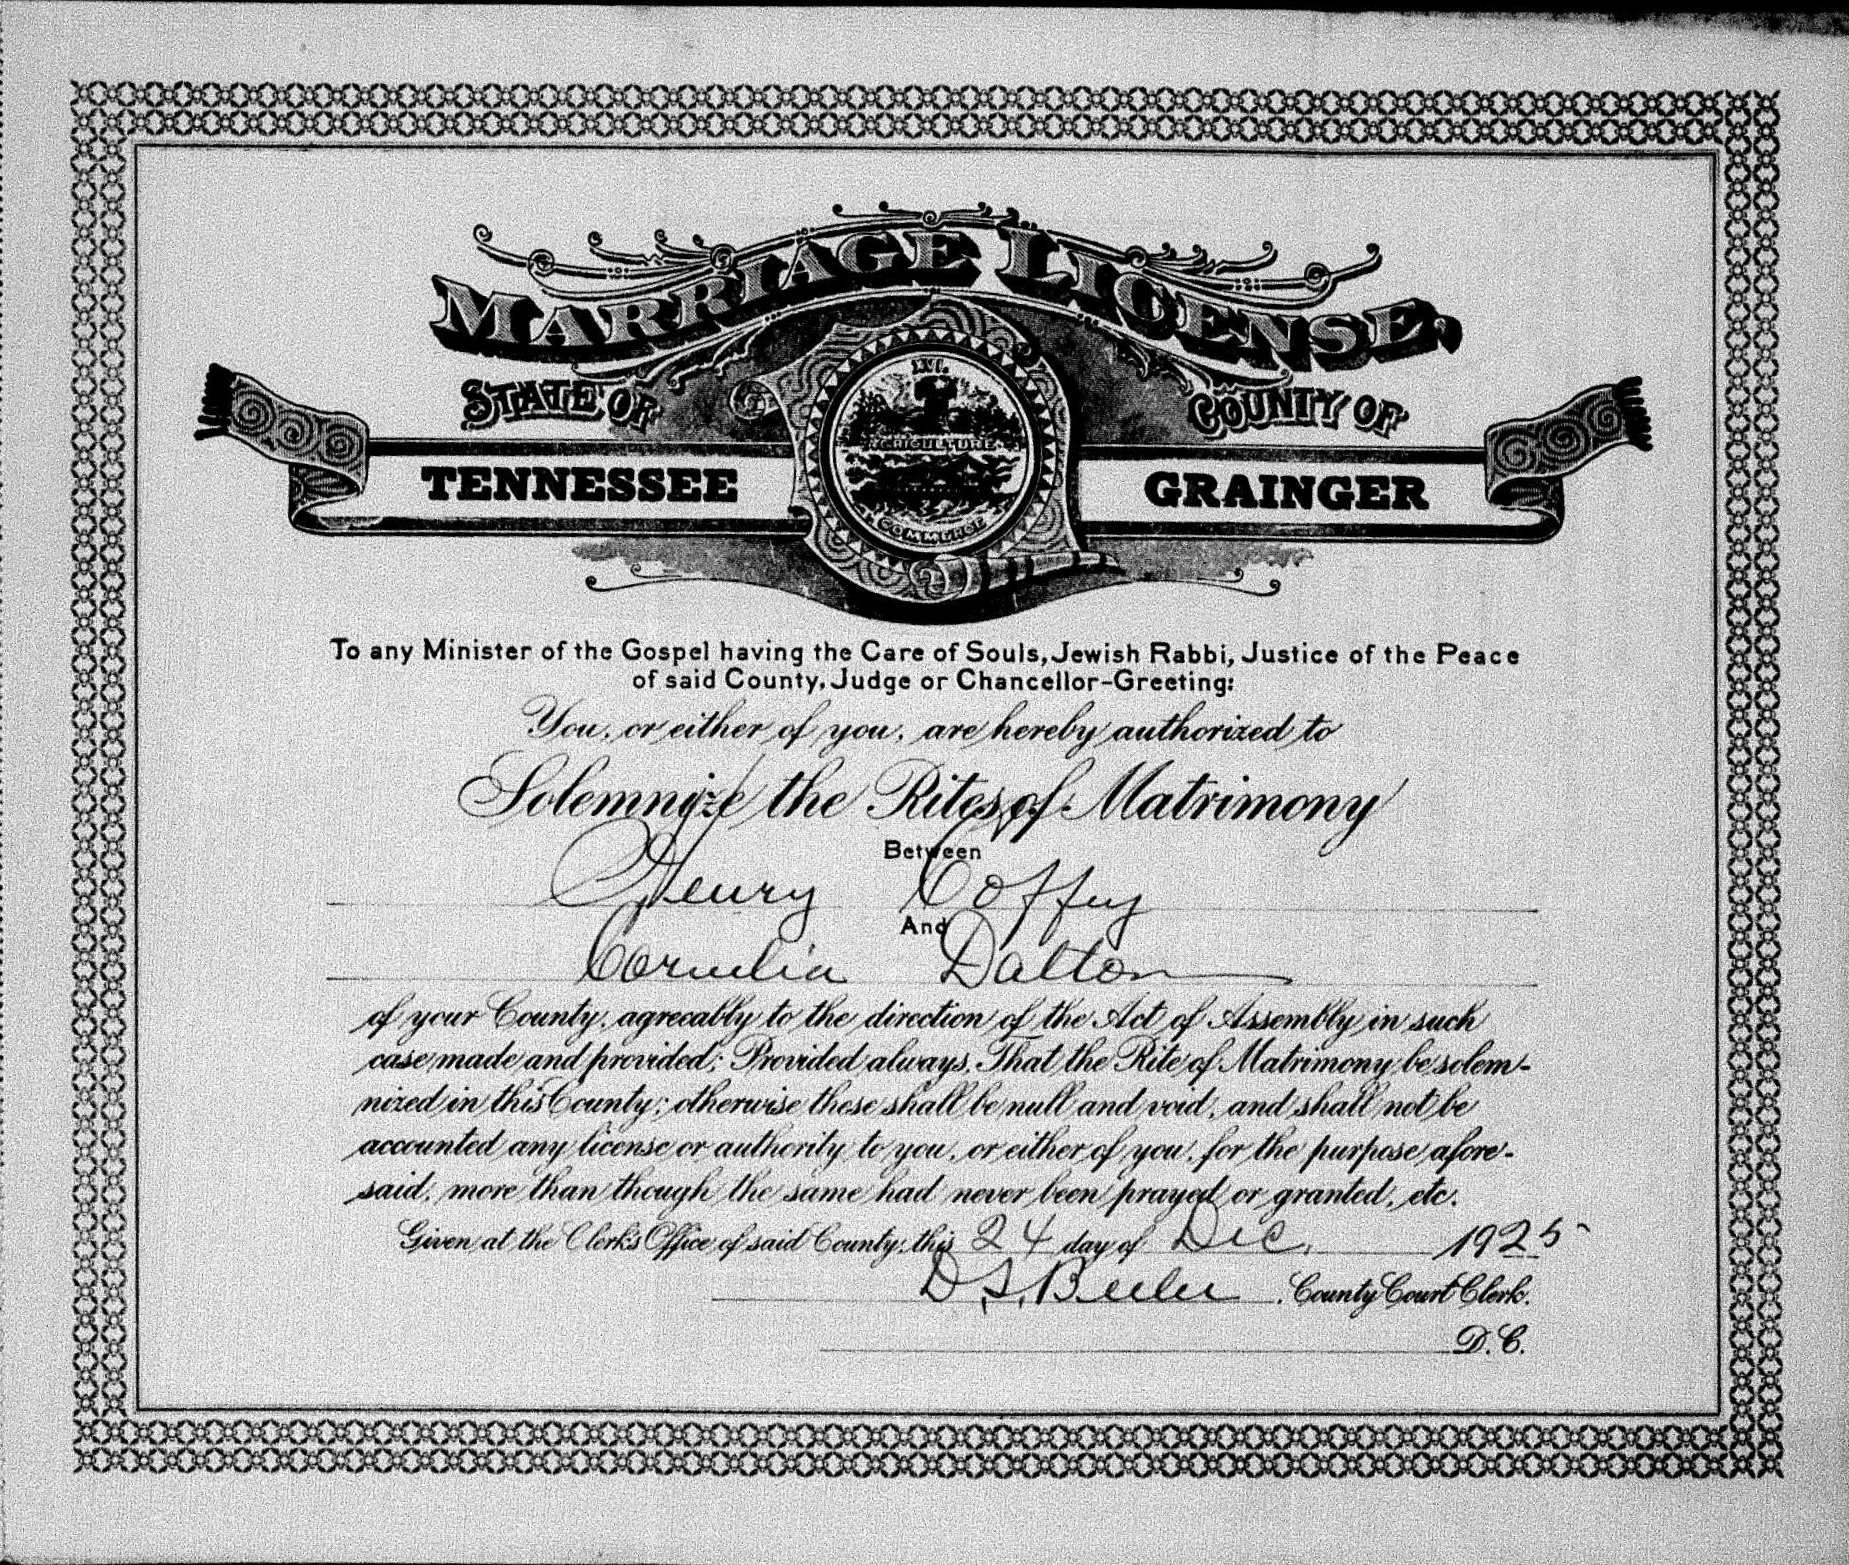 MARRIAGE LICENSE,
STATE OF
COUNTY OF
XVI.
AGRICULTURE
COMMERCE
TENNESSEE
GRAINGER
To any Minister of the Gospel having the Care of Souls, Jewish Rabbi, Justice of the Peace
of said County, Judge or Chancellor-Greeting:
You, or either of you, are hereby authorized to
Solemnize the Rites of Matrimony
Between
Henry Coffey
And
Cornelia Dalton
of your County, agreeably to the direction of the Act of Assembly in such
case made and provided; Provided always, That the Rite of Matrimony be solem-
nized in this County; otherwise these shall be null and void, and shall not be
accounted any license or authority to you, or either of you, for the purpose afore-
said, more than though the same had never been prayed or granted, etc.
Given at the Clerk's Office of said County, this 24 day of Dec. 1925
D. S. Beeler, County Court Clerk.
D. C.